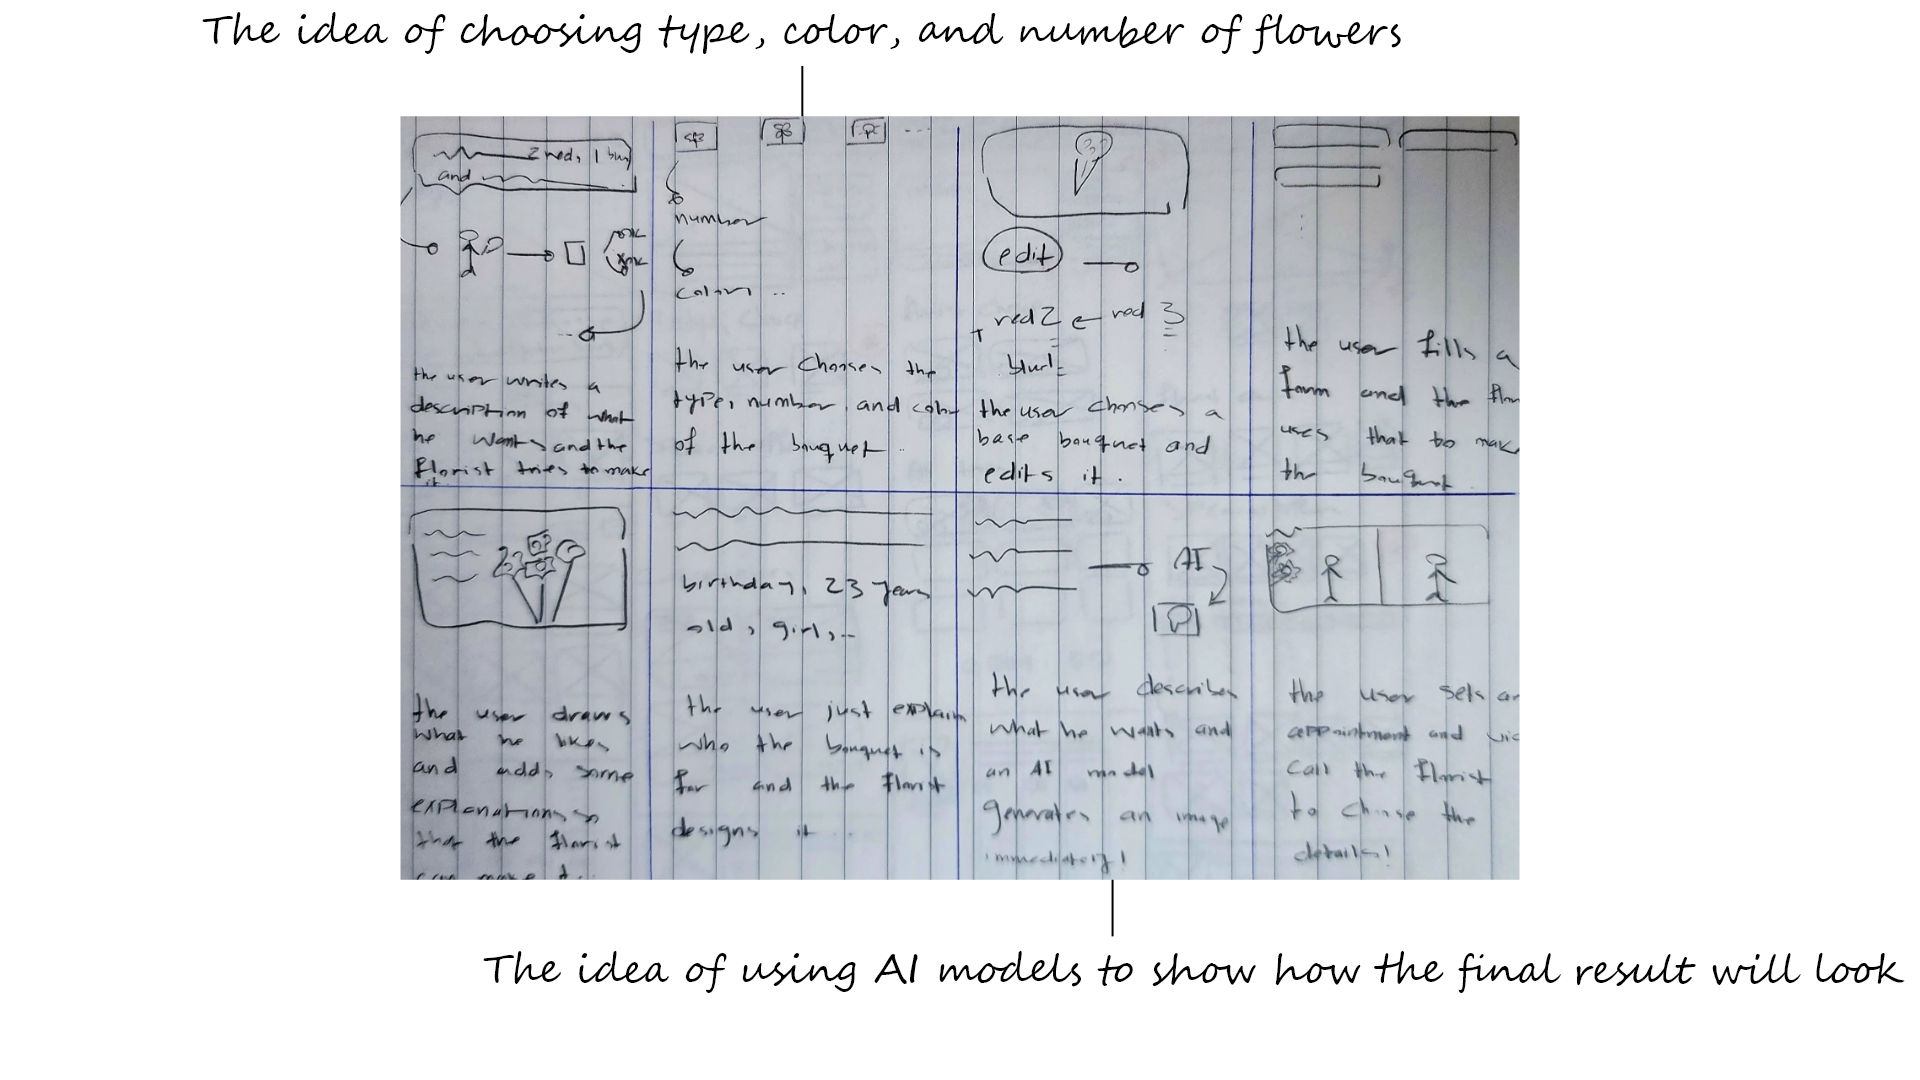 The idea of choosing type, color, and number of flowers
2 red, 1 blu
and
the user writes a
description of what
he wants and the
florist tries to make
it
number
color ..
the user chooses the
type, number, and colo
of the bouquet.
edit
red 2 red 3
+ blue 1
the user chooses a
base bouquet and
edits it.
the user fills a
form and the flo
uses that to mak
the bouquet.
the user draws
what he likes
and adds some
explanations so
that the florist
can make it..
birthday, 23 years
old, girl, ..
the user just explain
who the bouquet is
for and the florist
designs it ..
AI
the user describes
what he wants and
an AI model
generates an image
immediately!
the user sets an
appointment and vid
call the florist
to choose the
details!
The idea of using AI models to show how the final result will look